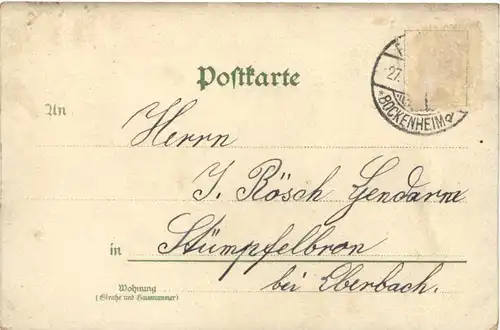 Postkarte
27.
* BOCKENHEIM
An
Herrn
J. Rösch Gendarm
in Stümpfelbron
bei Eberbach.
Wohnung
(Straße und Hausnummer)